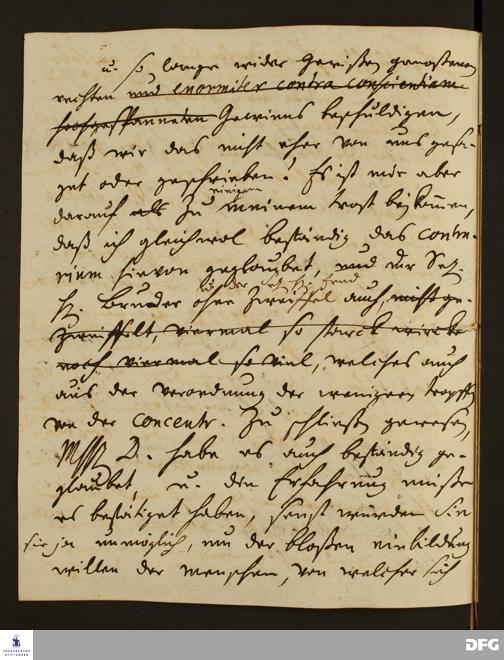 u. so lange wider Gewißen genoßenen
rechten und enormiter contra conscientiam
hochgespanneten Gewinns beschuldigen,
daß wir das nicht eher von uns gesa-
get oder geschrieben. Es ist mir aber
darauf als zu einigem meinem trost beykommen,
daß ich gleichwol beständig das contra-
rium hievon geglaubet, und der Sel.
H. Bruder ohne Zweiffel auch, nicht ge-
zweiffelt, viermal so starck wircke
noch viermal so viel, welches auch
aus der verordnung der wenigern tropffen
von der concentr. zu schließen gewesen,
D. habe es auch beständig ge-
glaubet, u. die Erfahrung müße
es bestätiget haben, sonst würden Sie
sie ja unmöglich, um der bloßen einbildung
willen der menschen, von welcher sich
FRANCKESCHE STIFTUNGEN
DFG